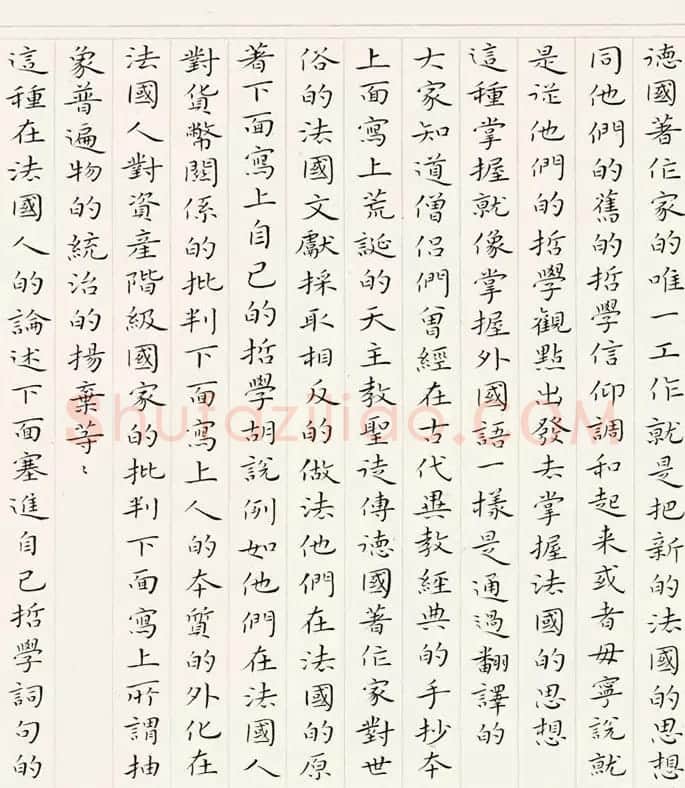 德國著作家的唯一工作就是把新的法國的思想
同他們的舊的哲學信仰調和起来或者毋寧說就
是從他們的哲學觀點出發去掌握法國的思想
這種掌握就像掌握外國語一樣是通過翻譯的
大家知道僧侣們曾經在古代異教經典的手抄本
上面寫上荒誕的天主教聖徒傳德國著作家對世
俗的法國文獻採取相反的做法他們在法國的原
著下面寫上自己的哲學胡說例如他們在法國人
對貨幣關係的批判下面寫上人的本質的外化在
法國人對資產階級國家的批判下面寫上所謂抽
象普遍物的統治的揚棄等等
這種在法國人的論述下面塞進自己哲學詞句的
Shufaziliao.COM